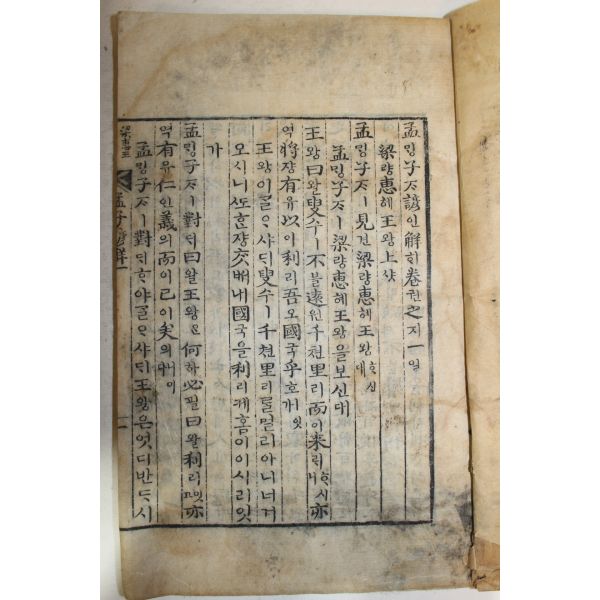 孟밍子ᄌᆞ諺언解ᄒᆡ卷권之지一일
梁량惠혜王왕上샹
孟밍子ᄌᆞㅣ見견梁량惠혜王왕ᄒᆞ신대
孟밍子ᄌᆞㅣ梁량惠혜王왕을보신대
王왕曰왈叟수ㅣ不블遠원千쳔里리而이來ᄅᆡᄒᆞ시니亦
역將쟝有유以이利리吾오國국乎호잇가
王왕이ᄀᆞᆯᄋᆞ샤ᄃᆡ叟수ㅣ千쳔里리ᄅᆞᆯ멀리아니너겨
오시니ᄯᅩᄒᆞᆫ쟝ᄎᆞᆺ내國국을利리케홈이이시리잇
가
孟밍子ᄌᆞㅣ對ᄃᆡ曰왈王왕은何하必필曰왈利리잇고亦
역有유仁인義의而이已이矣의
孟밍子ᄌᆞㅣ對ᄃᆡᄒᆞ야ᄀᆞᆯᄋᆞ샤ᄃᆡ王왕은엇디반ᄃᆞ시
梁惠王 孟子諺解一